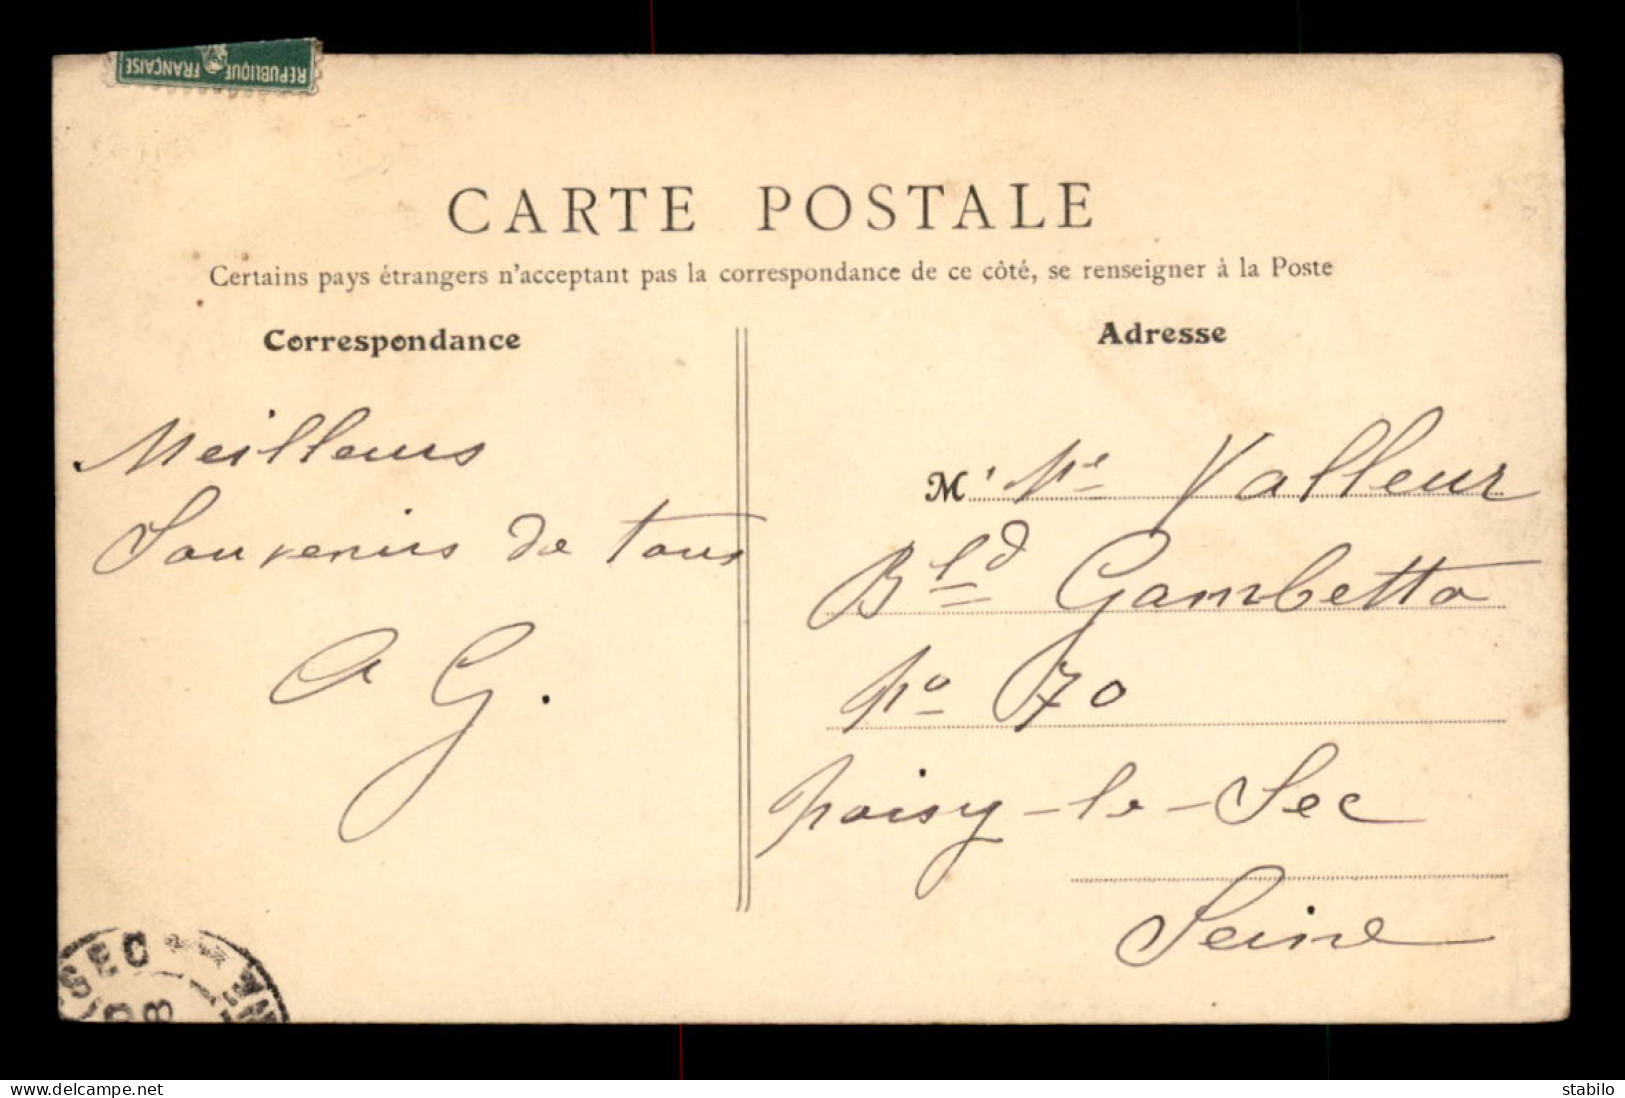 REPUBLIQUE FRANÇAISE
CARTE POSTALE
Certains pays étrangers n'acceptant pas la correspondance de ce côté, se renseigner à la Poste
Correspondance
Adresse
Meilleurs
Souvenirs de tous
A G.
M' Valleur
Bld Gambetta
No 70
Noisy-le-Sec
Seine
SEC
delcampe.net
stabilo